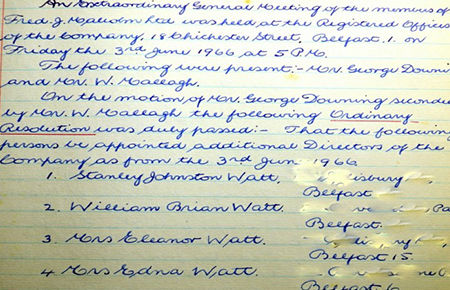 An Extraordinary General Meeting of the members of
Fred. J. Malcolm Ltd. was held at the Registered Offices
of the Company, 18 Chichester Street, Belfast. 1. on
Friday the 3rd June 1966 at 5 P.M.
The following were present:- Mr. George Downi
and Mr. W. Mallagh.
On the motion of Mr. George Downing seconde
by Mr. W. Mallagh the following Ordinary
Resolution was duly passed:- That the following
persons be appointed additional Directors of the
Company as from the 3rd June 1966.
1. Stanley Johnston Watt. isbury
Belfast
2. William Brian Watt. Pa
Belfast.
3. Mrs Eleanor Watt.
Belfast 15.
4 Mrs Edna Watt.
Belfast 6